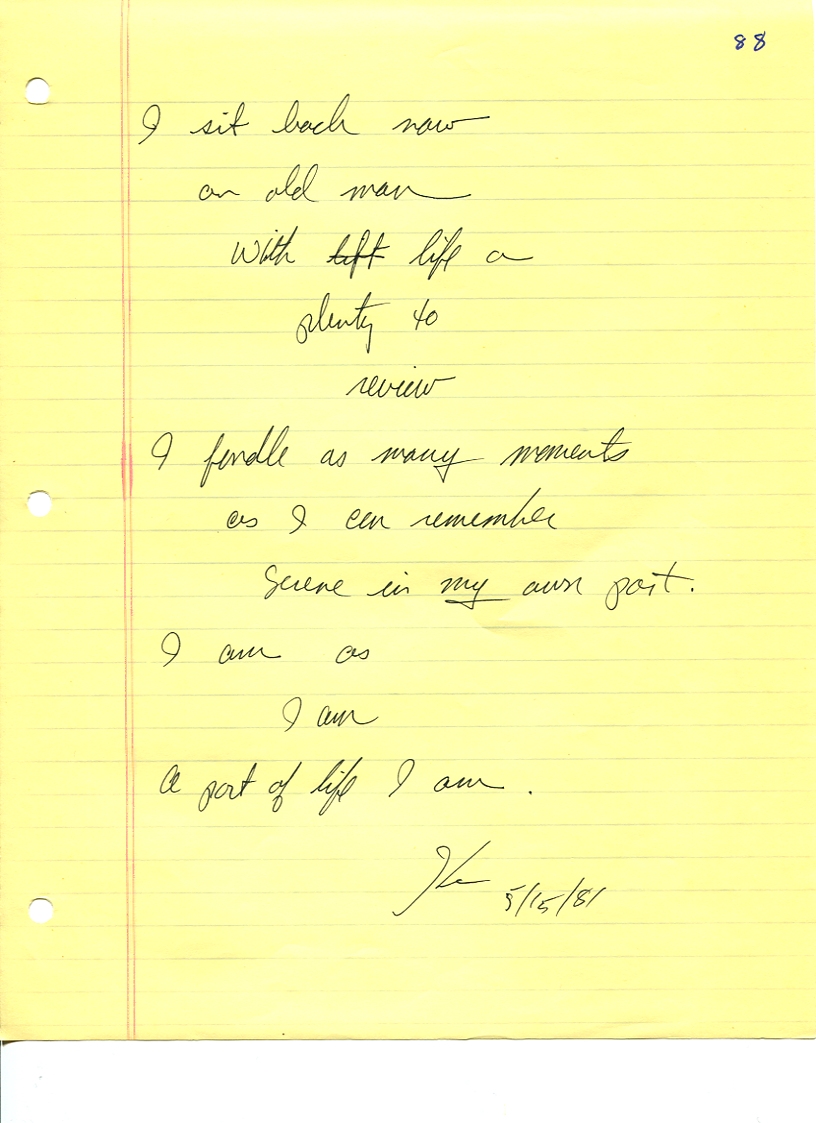 88
I sit back now
an old man
With left life a
plenty to
review
I fondle as many moments
as I can remember
Serene in my own past.
I am as
I am
A part of life I am.
5/15/81